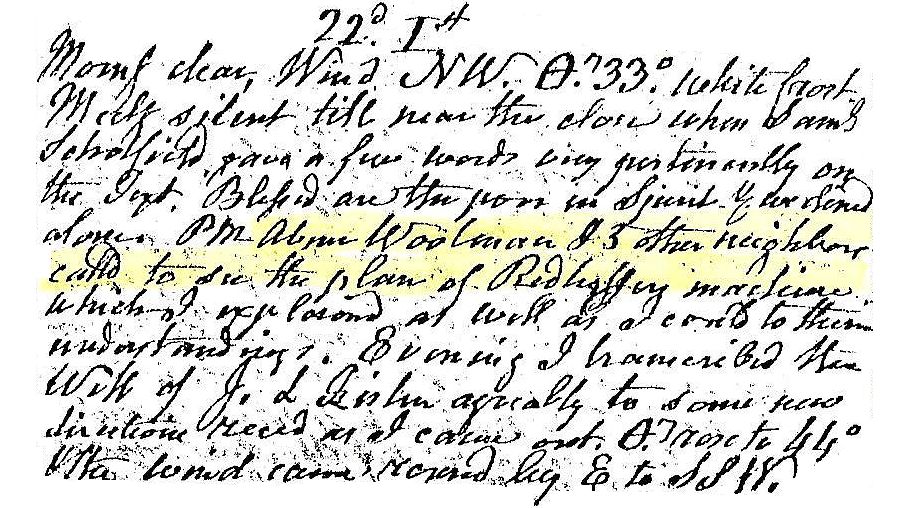 22d. 1st
Morng clear, Wind NW. 33° White frost
Meetg silent till near the close when Saml
Scholfield gave a few words very pertinently on
the Text. Blessed are the poor in Spirit. I dined
alone. PM Abner Woolman & 3 other neighbors
calld to see the plan of Redheffers machine
which I explained as well as I could to their
understandings. Evening I transcribed the
Will of J. L Fisher agreeably to some new
directions recd as I came out. rose to 44°
the wind came round by E to SSW.